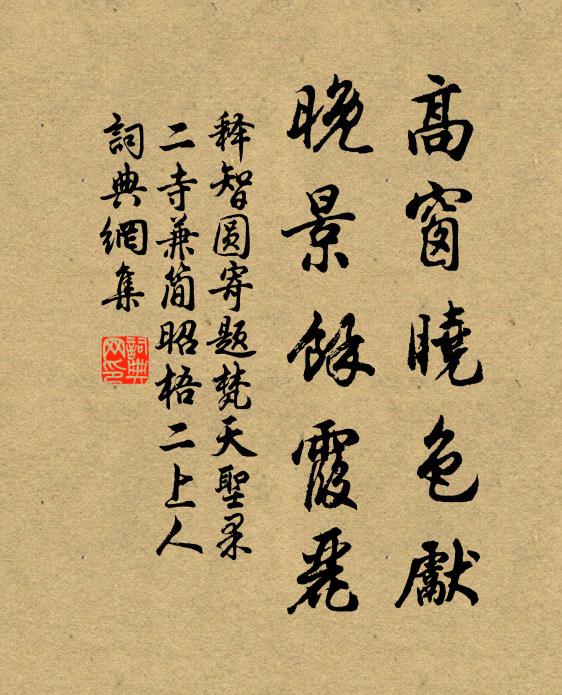 高窗曉色獻
晚景餘霞麗
释智圆寄题梵天聖果
二寺兼简昭梧二上人
詞典網集
詞典
网印